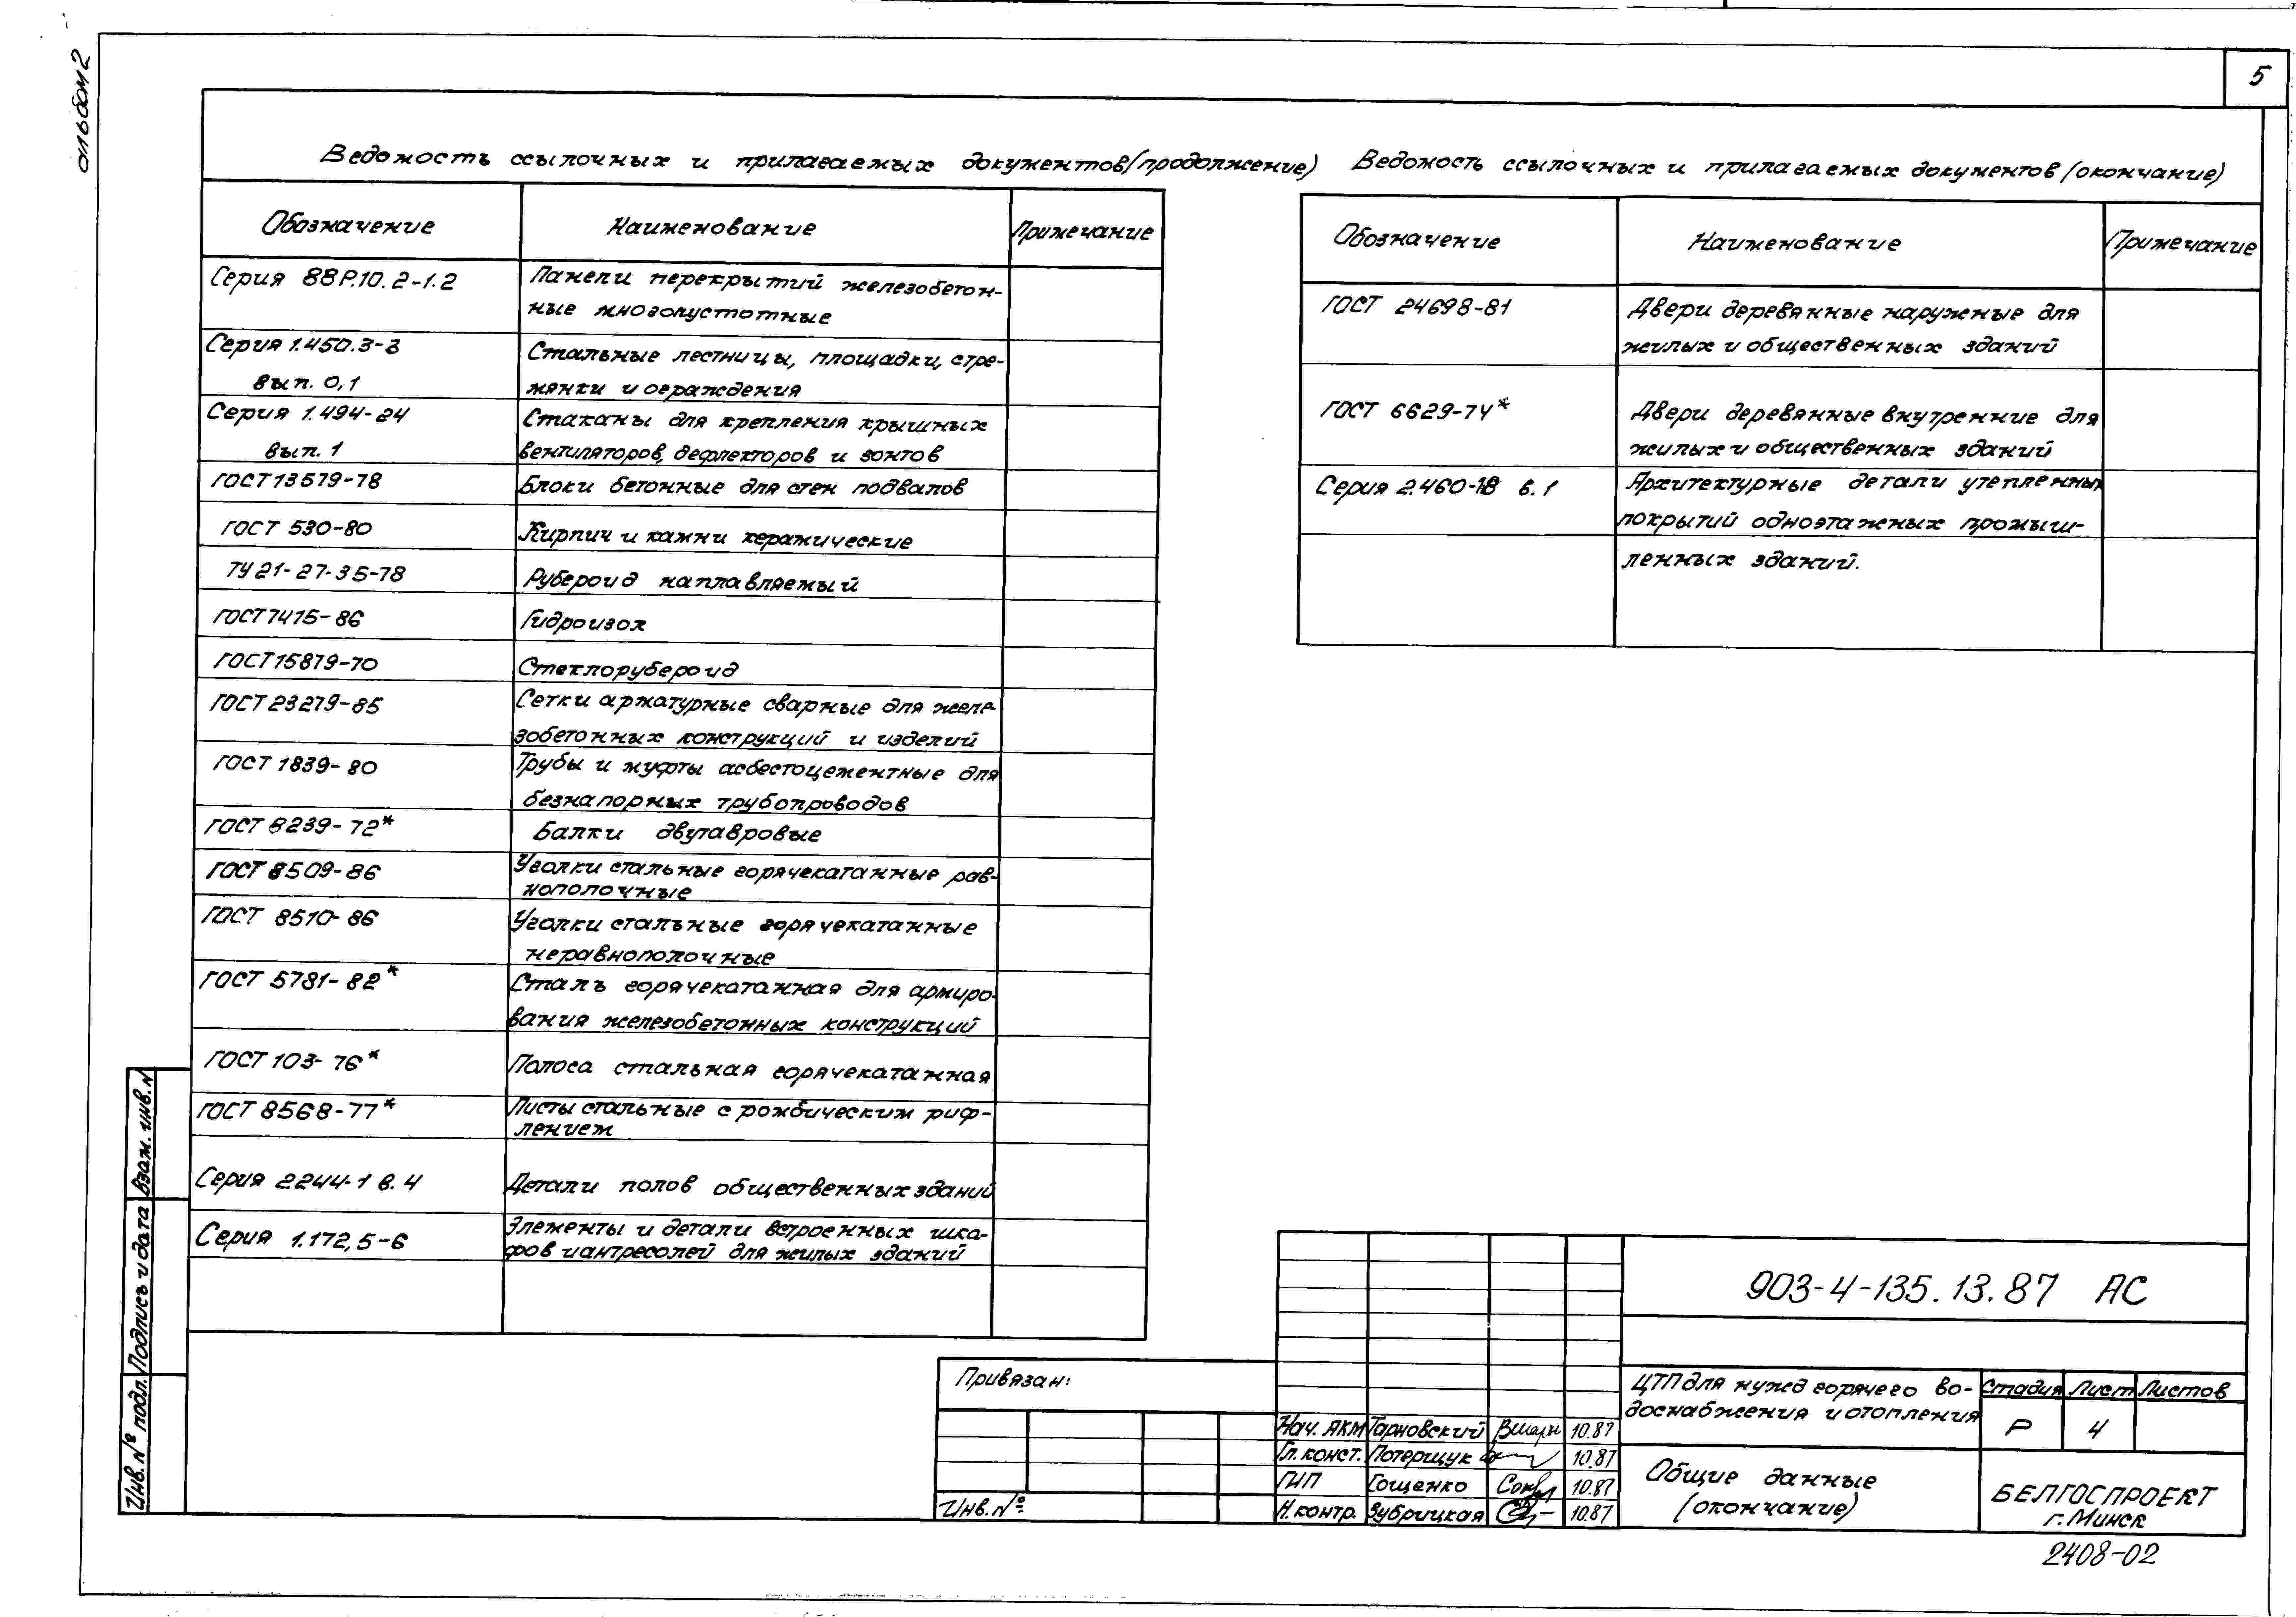 альбом 2
5
Ведомость ссылочных и прилагаемых документов (продолжение)
Обозначение Наименование Примечание
Серия 88Р.10.2-1.2 Панели перекрытий железобетон-
ные многопустотные
Серия 1.450.3-3 Стальные лестницы, площадки, стре-
вып. 0,1 мянки и ограждения
Серия 1.494-24 Стаканы для крепления крышных
вып. 1 вентиляторов, дефлекторов и зонтов
ГОСТ 13579-78 Блоки бетонные для стен подвалов
ГОСТ 530-80 Кирпич и камни керамические
ТУ 21-27-35-78 Рубероид наплавляемый
ГОСТ 7415-86 Гидроизол
ГОСТ 15879-70 Стеклорубероид
ГОСТ 23279-85 Сетки арматурные сварные для желе-
зобетонных конструкций и изделий
ГОСТ 1839-80 Трубы и муфты асбестоцементные для
безнапорных трубопроводов
ГОСТ 8239-72* Балки двутавровые
ГОСТ 8509-86 Уголки стальные горячекатанные рав-
нополочные
ГОСТ 8510-86 Уголки стальные горячекатанные
неравнополочные
ГОСТ 5781-82* Сталь горячекатанная для армиро-
вания железобетонных конструкций
ГОСТ 103-76* Полоса стальная горячекатанная
ГОСТ 8568-77* Листы стальные с ромбическим риф-
лением
Серия 2.244-1 в.4 Детали полов общественных зданий
Серия 1.172,5-6 Элементы и детали встроенных шка-
фов и антресолей для жилых зданий
Ведомость ссылочных и прилагаемых документов (окончание)
Обозначение Наименование Примечание
ГОСТ 24698-81 Двери деревянные наружные для
жилых и общественных зданий
ГОСТ 6629-74* Двери деревянные внутренние для
жилых и общественных зданий
Серия 2.460-18 в.1 Архитектурные детали утепленных
покрытий одноэтажных промыш-
ленных зданий.
Взам. инв. №
Подпись и дата
Инв. № подл.
Привязан:
Инв. №
903-4-135.13.87 АС
Нач. АКМ Тарновский 10.87
Гл. конст. Потерщук 10.87
ГИП Гощенко 10.87
Н. контр. Зубрицкая 10.87
ЦТП для нужд горячего во-
доснабжения и отопления
Стадия Лист Листов
Р 4
Общие данные
(окончание)
БЕЛГОСПРОЕКТ
г. Минск
2408-02